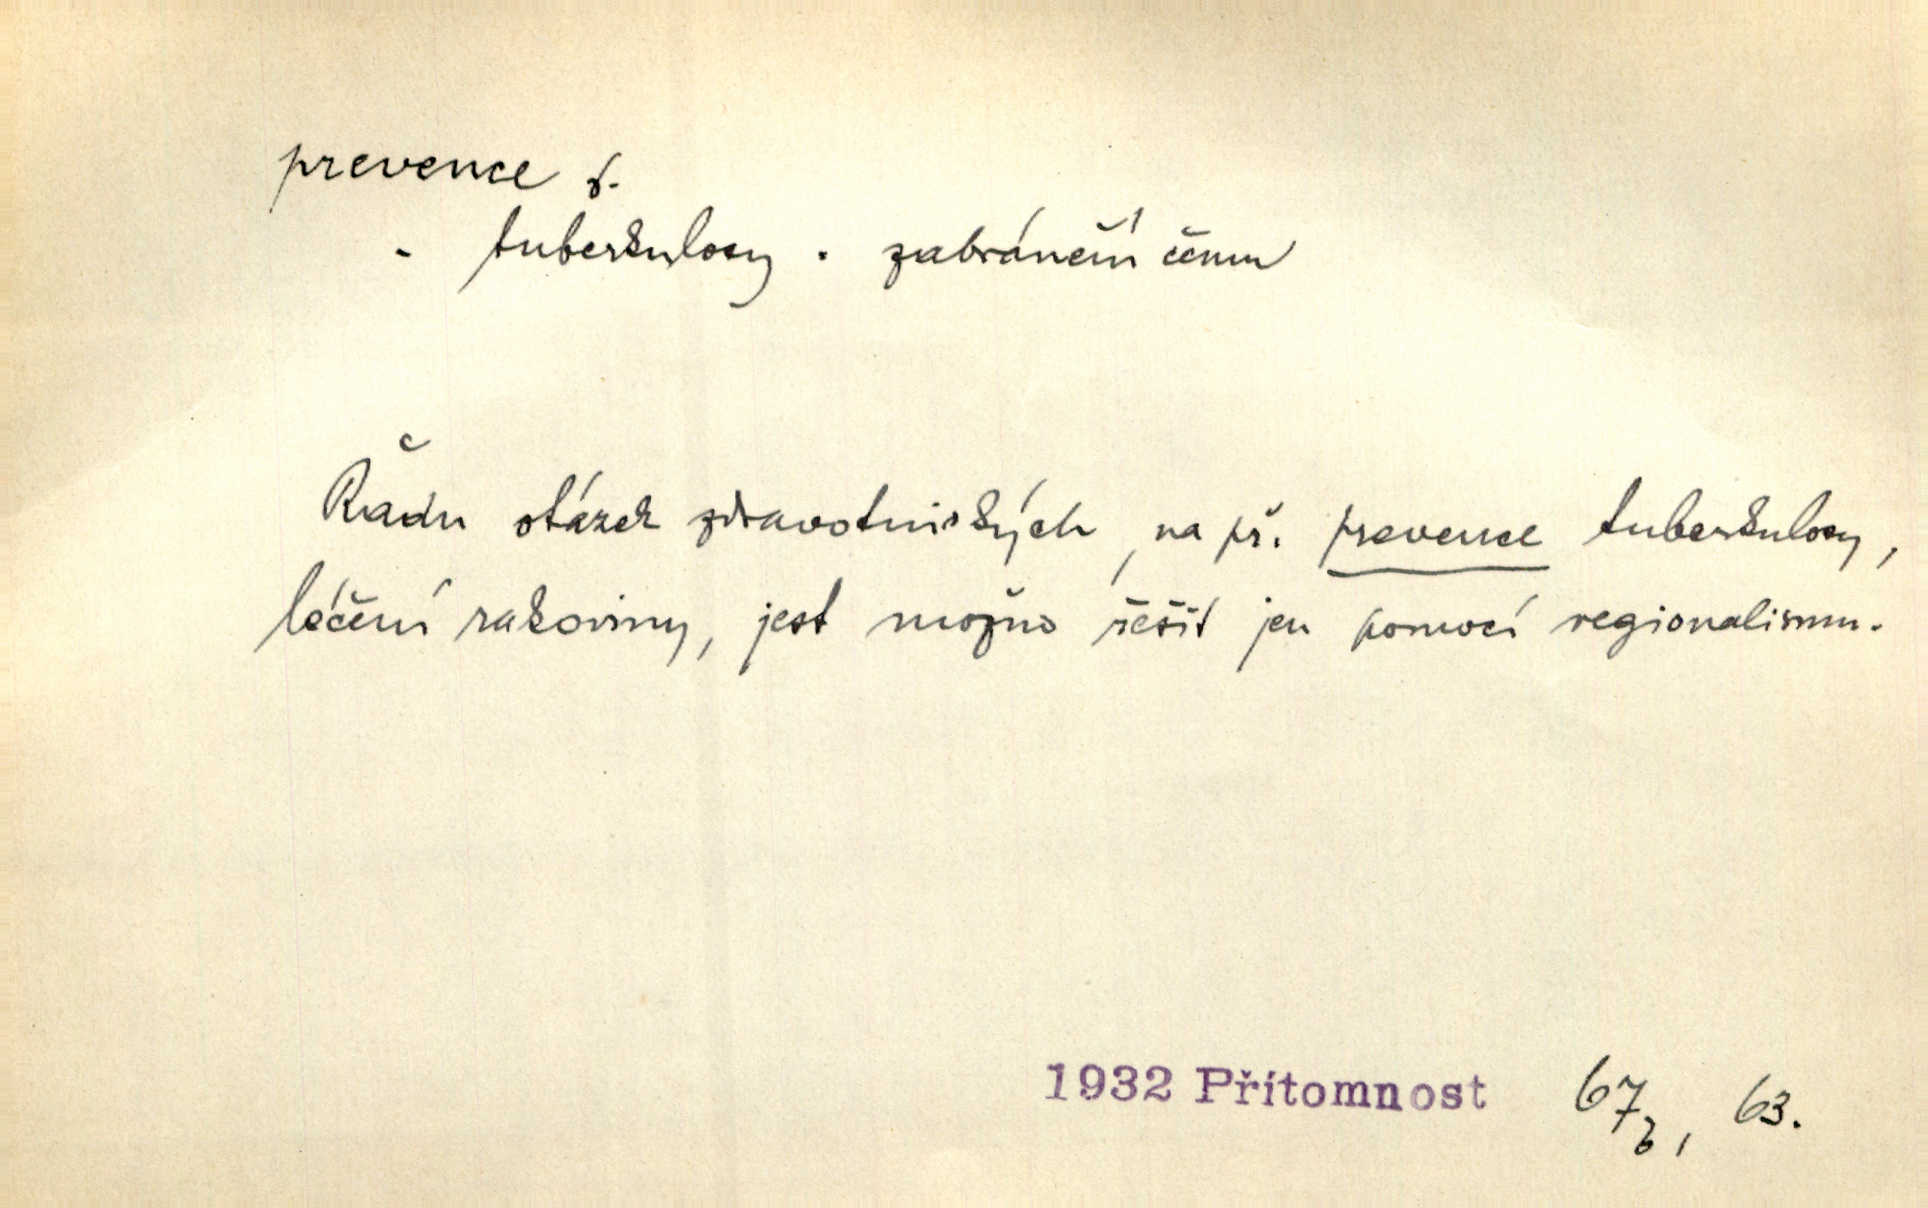 prevence f.
- tuberkulosy . zabránění čemu
Řadu otázek zdravotnických, na př. prevence tuberkulosy,
léčení rakoviny, jest možno řešit jen pomocí regionalismu.
1932 Přítomnost 67b, 63.